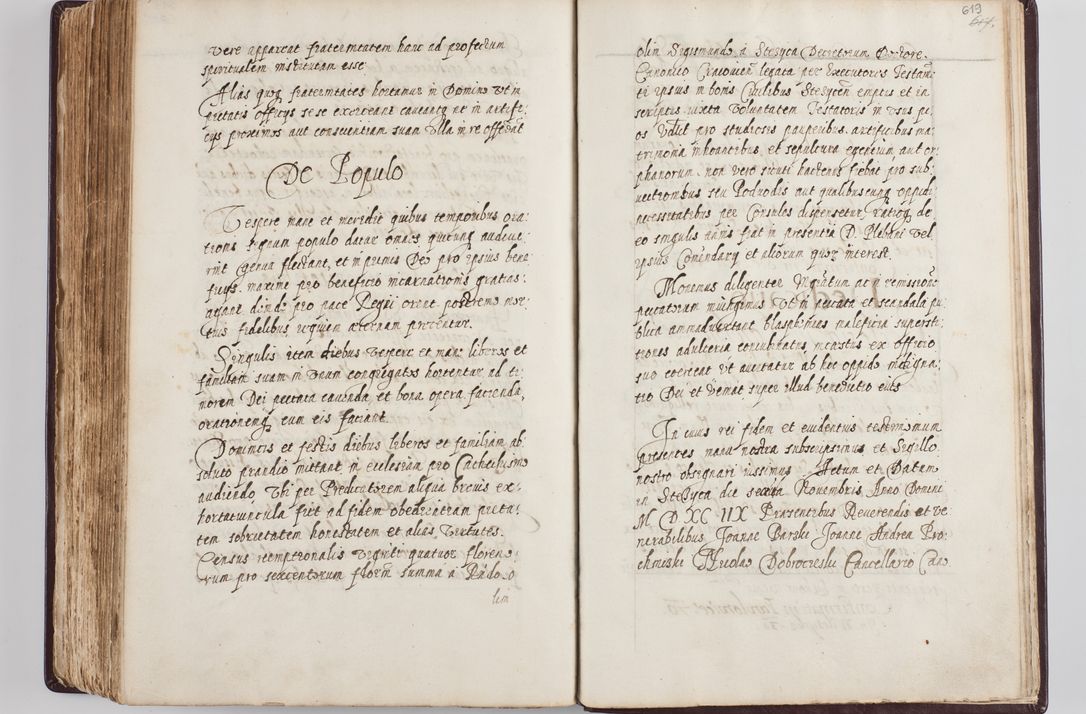 vere appareat fraternitatem hanc ad profectum
spiritualem institutam esse
Alias quoq fraternitates hortamur in Domino vt in
pietatis officys se se exerceant caveantq ne in artific
cys proximos aut conscientiam suam vlla in re offendat
De Populo
Vespere mane et meridie quibus temporibus ora:
tionis signum populo datur omnes quicunq audiue:
rint genua flectant, et in primis Deo pro ipsius bene
ficys. maxime pro beneficio incarnationis gratias:
agant deinde pro pace Regni orent postremo mor:
tuis fidelibus requiem æternam precentur.
Singulis item diebus vespere et mane liberos et
familiam suam in vnum congregatos hortentur ad ti
morem Dei peccata cavenda et bona opera facienda,
orationemq cum eis faciant
Dominicis et festis diebus liberos et familiam ab
soluto prandio mittant in ecclesiam pro Cathechismo
audiendo Vbi per Predicatorem aliqua brevis ex:
hortatiuncula fiet ad fidem obedientiam pieta:
tem sobrietatem honestatem et alias virtutes.
Census reemptionalis viginti quatuor floreno
rum pro sexcentorum floren summa a
lim
619
olim Sigismundo à Stezyca Decretorum Doctore.
Canonico Cracovien legata per Executores Testam
ti ipsius in bonis Civilibus Stezycen emptus et in
scriptus iuxta voluntatem Testatoris in vsus pi
os Vdlit pro studiosis pauperibus. artificibus ma
trimonia inhoantibus, et sepultura egentium aut or
phanorum. non vero sicuti hactenus fiebat pro sub
uectionibus seu Podvodis aut qualibuscunq oppidi
necessitatibus per Consules dispensetur ratioq de
eo singulis annis fiat in presentia D. Plebani vel
ipsius Comendary et aliorum quorum interest.
Monemus diligenter Magistratum ac in remissione
peccatorum iniungimus vt in peccata et scandala pu
blica animaduertant blasphemias maleficia supersti
tiones adulteria concubinatus, incestus ex officio
suo coerceat vt auertatur ab hoc oppido indigna
tio Dei et veniat super illud benedictio eius
In cuius rei fidem et euidentius testimonium
presentes manu nostra subscripsimus et Sigillo
nostro obsignari iussimus Actum et Datum
in Stezyca die sexta Nouembris, Anno Domini
M D XC IIX Praesentibus Reuerendis et ve
nerabilibus Joanne Barski Joanne Andrea Pro
chnicki Nicolao Dobrocieski Cancellario Cano